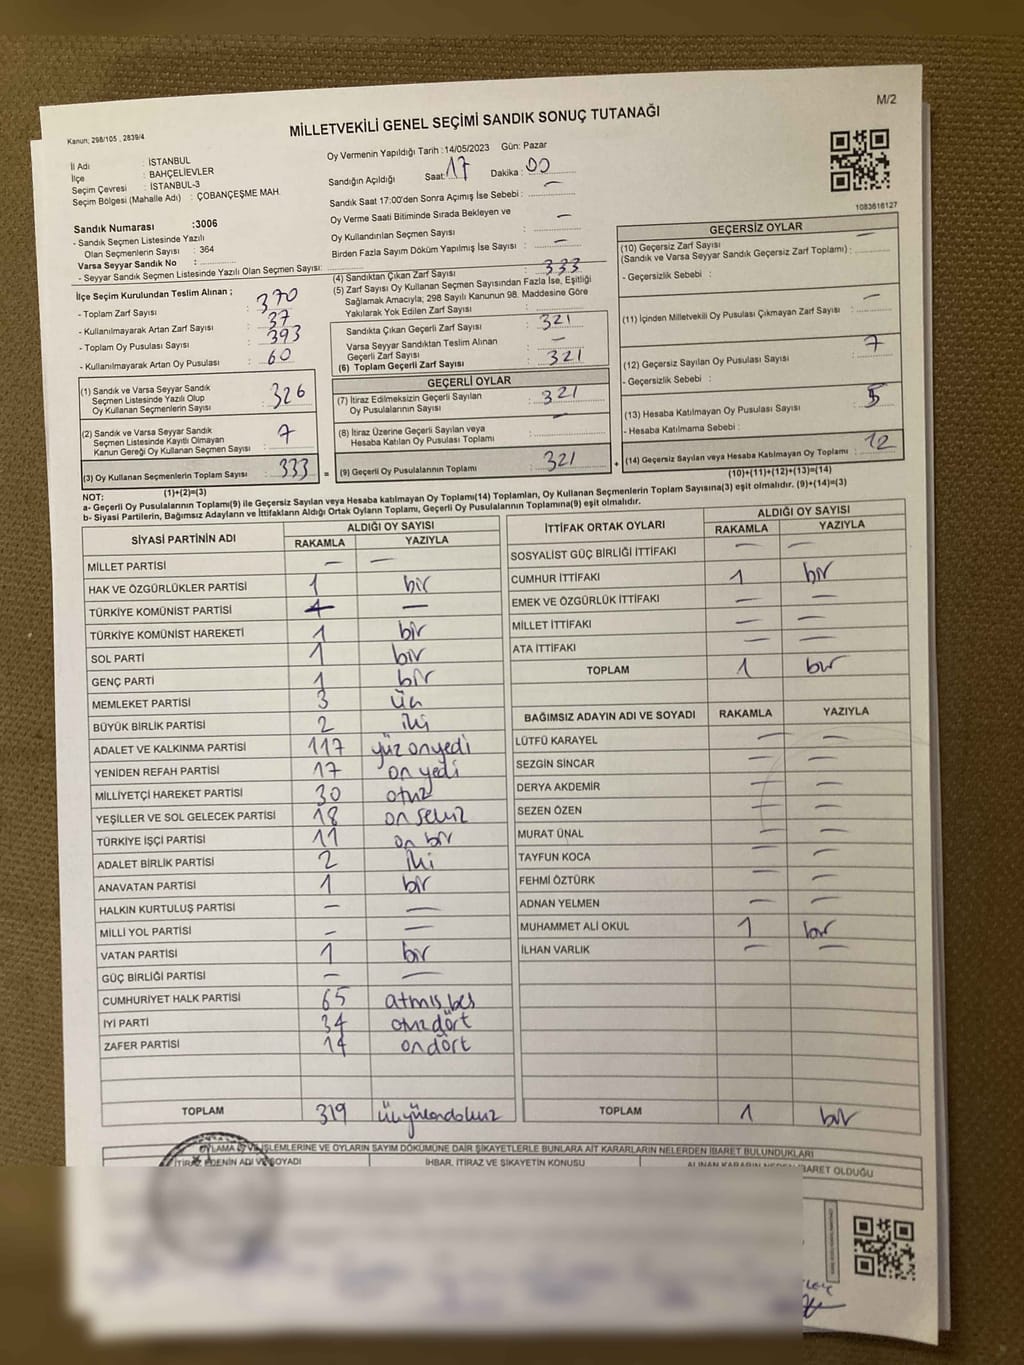 M/2
Kanun; 298/105 , 2839/4
MİLLETVEKİLİ GENEL SEÇİMİ SANDIK SONUÇ TUTANAĞI
İl Adı : İSTANBUL
İlçe : BAHÇELİEVLER
Seçim Çevresi : İSTANBUL-3
Seçim Bölgesi (Mahalle Adı) : ÇOBANÇEŞME MAH.
Sandık Numarası :3006
- Sandık Seçmen Listesinde Yazılı
Olan Seçmenlerin Sayısı : 364
Varsa Seyyar Sandık No :
- Seyyar Sandık Seçmen Listesinde Yazılı Olan Seçmen Sayısı:
Oy Vermenin Yapıldığı Tarih :14/05/2023 Gün: Pazar
Sandığın Açıldığı Saat: 17 Dakika : 00
Sandık Saat 17:00'den Sonra Açımış İse Sebebi : —
Oy Verme Saati Bitiminde Sırada Bekleyen ve
Oy Kullandırılan Seçmen Sayısı : —
Birden Fazla Sayım Döküm Yapılmış İse Sayısı : —
1083616127
İlçe Seçim Kurulundan Teslim Alınan ;
- Toplam Zarf Sayısı : 370
- Kullanılmayarak Artan Zarf Sayısı : 37
- Toplam Oy Pusulası Sayısı : 393
- Kullanılmayarak Artan Oy Pusulası : 60
(1) Sandık ve Varsa Seyyar Sandık
Seçmen Listesinde Yazılı Olup
Oy Kullanan Seçmenlerin Sayısı : 326
(2) Sandık ve Varsa Seyyar Sandık
Seçmen Listesinde Kayıtlı Olmayan
Kanun Gereği Oy Kullanan Seçmen Sayısı : 7
(3) Oy Kullanan Seçmenlerin Toplam Sayısı : 333
(1)+(2)=(3)
(4) Sandıktan Çıkan Zarf Sayısı : 333
(5) Zarf Sayısı Oy Kullanan Seçmen Sayısından Fazla İse, Eşitliği
Sağlamak Amacıyla; 298 Sayılı Kanunun 98. Maddesine Göre
Yakılarak Yok Edilen Zarf Sayısı :
Sandıkta Çıkan Geçerli Zarf Sayısı : 321
Varsa Seyyar Sandıktan Teslim Alınan
Geçerli Zarf Sayısı : —
(6) Toplam Geçerli Zarf Sayısı : 321
GEÇERLİ OYLAR
(7) İtiraz Edilmeksizin Geçerli Sayılan
Oy Pusulalarının Sayısı : 321
(8) İtiraz Üzerine Geçerli Sayılan veya
Hesaba Katılan Oy Pusulası Toplamı : —
= (9) Geçerli Oy Pusulalarının Toplamı : 321
GEÇERSİZ OYLAR
(10) Geçersiz Zarf Sayısı
(Sandık ve Varsa Seyyar Sandık Geçersiz Zarf Toplamı) : —
- Geçersizlik Sebebi :
(11) İçinden Milletvekili Oy Pusulası Çıkmayan Zarf Sayısı : —
(12) Geçersiz Sayılan Oy Pusulası Sayısı : 7
- Geçersizlik Sebebi :
(13) Hesaba Katılmayan Oy Pusulası Sayısı : 5
- Hesaba Katılmama Sebebi :
+ (14) Geçersiz Sayılan veya Hesaba Katılmayan Oy Toplamı : 12
(10)+(11)+(12)+(13)=(14)
NOT:
a- Geçerli Oy Pusulalarının Toplamı(9) ile Geçersiz Sayılan veya Hesaba katılmayan Oy Toplamı(14) Toplamları, Oy Kullanan Seçmenlerin Toplam Sayısına(3) eşit olmalıdır. (9)+(14)=(3)
b- Siyasi Partilerin, Bağımsız Adayların ve İttifakların Aldığı Ortak Oyların Toplamı, Geçerli Oy Pusulalarının Toplamına(9) eşit olmalıdır.
SİYASİ PARTİNİN ADI ALDIĞI OY SAYISI
RAKAMLA YAZIYLA
MİLLET PARTİSİ — —
HAK VE ÖZGÜRLÜKLER PARTİSİ 1 bir
TÜRKİYE KOMÜNİST PARTİSİ —
TÜRKİYE KOMÜNİST HAREKETİ 1 bir
SOL PARTİ 1 bir
GENÇ PARTİ 1 bir
MEMLEKET PARTİSİ 3 üç
BÜYÜK BİRLİK PARTİSİ 2 iki
ADALET VE KALKINMA PARTİSİ 117 yüz onyedi
YENİDEN REFAH PARTİSİ 17 on yedi
MİLLİYETÇİ HAREKET PARTİSİ 30 otuz
YEŞİLLER VE SOL GELECEK PARTİSİ 18 on sekiz
TÜRKİYE İŞÇİ PARTİSİ 11 on bir
ADALET BİRLİK PARTİSİ 2 iki
ANAVATAN PARTİSİ 1 bir
HALKIN KURTULUŞ PARTİSİ — —
MİLLİ YOL PARTİSİ — —
VATAN PARTİSİ 1 bir
GÜÇ BİRLİĞİ PARTİSİ — —
CUMHURİYET HALK PARTİSİ 65 atmış beş
İYİ PARTİ 34 otuz dört
ZAFER PARTİSİ 14 on dört
TOPLAM 319 üçyüzondokuz
İTTİFAK ORTAK OYLARI ALDIĞI OY SAYISI
RAKAMLA YAZIYLA
SOSYALİST GÜÇ BİRLİĞİ İTTİFAKI — —
CUMHUR İTTİFAKI 1 bir
EMEK VE ÖZGÜRLÜK İTTİFAKI — —
MİLLET İTTİFAKI — —
ATA İTTİFAKI — —
TOPLAM 1 bir
BAĞIMSIZ ADAYIN ADI VE SOYADI RAKAMLA YAZIYLA
LÜTFÜ KARAYEL — —
SEZGİN SİNCAR — —
DERYA AKDEMİR — —
SEZEN ÖZEN — —
MURAT ÜNAL — —
TAYFUN KOCA — —
FEHMİ ÖZTÜRK — —
ADNAN YELMEN — —
MUHAMMET ALİ OKUL 1 bir
İLHAN VARLIK — —
TOPLAM 1 bir
OYLAMA İŞLEMLERİNE VE OYLARIN SAYIM DÖKÜMÜNE DAİR ŞİKAYETLERLE BUNLARA AİT KARARLARIN NELERDEN İBARET BULUNDUKLARI
İTİRAZ EDENİN ADI VE SOYADI İHBAR, İTİRAZ VE ŞİKAYETİN KONUSU ALINAN KARARIN NEDEN İBARET OLDUĞU